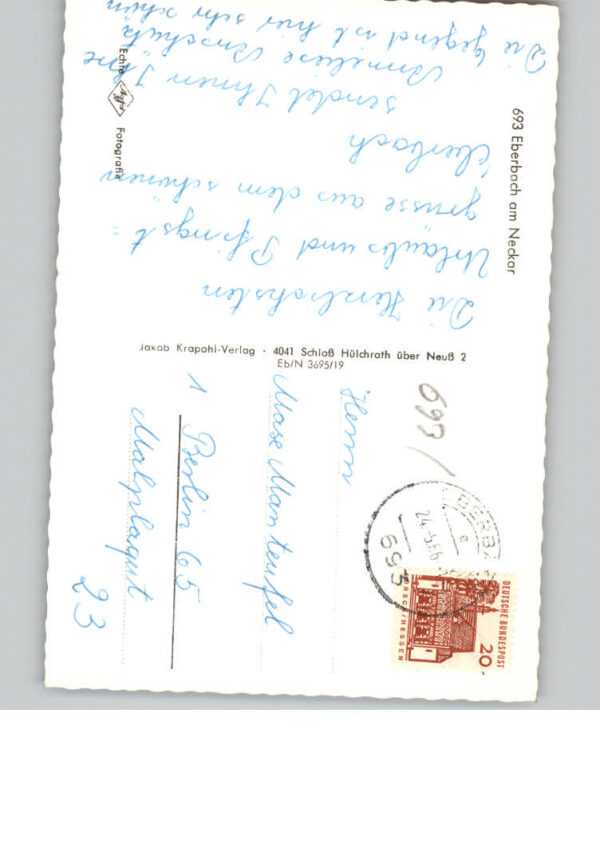 693 Eberbach am Neckar
Die Herzlichsten
Urlaubs und Pfingst-
grüsse aus dem schönen
Eberbach
sendet Ihnen Ihre
Anneliese
Die Gegend ist hier sehr schön
Echte
Agfa
Fotografie
Jakob Krapohl-Verlag · 4041 Schloß Hülchrath über Neuß 2
Eb/N 3695/19
693/
EBERBA
693
e
DEUTSCHE BUNDESPOST
20
LORSCH/HESSEN
Herrn
Max Manteufel
1 Berlin 65
Malplaquet
23